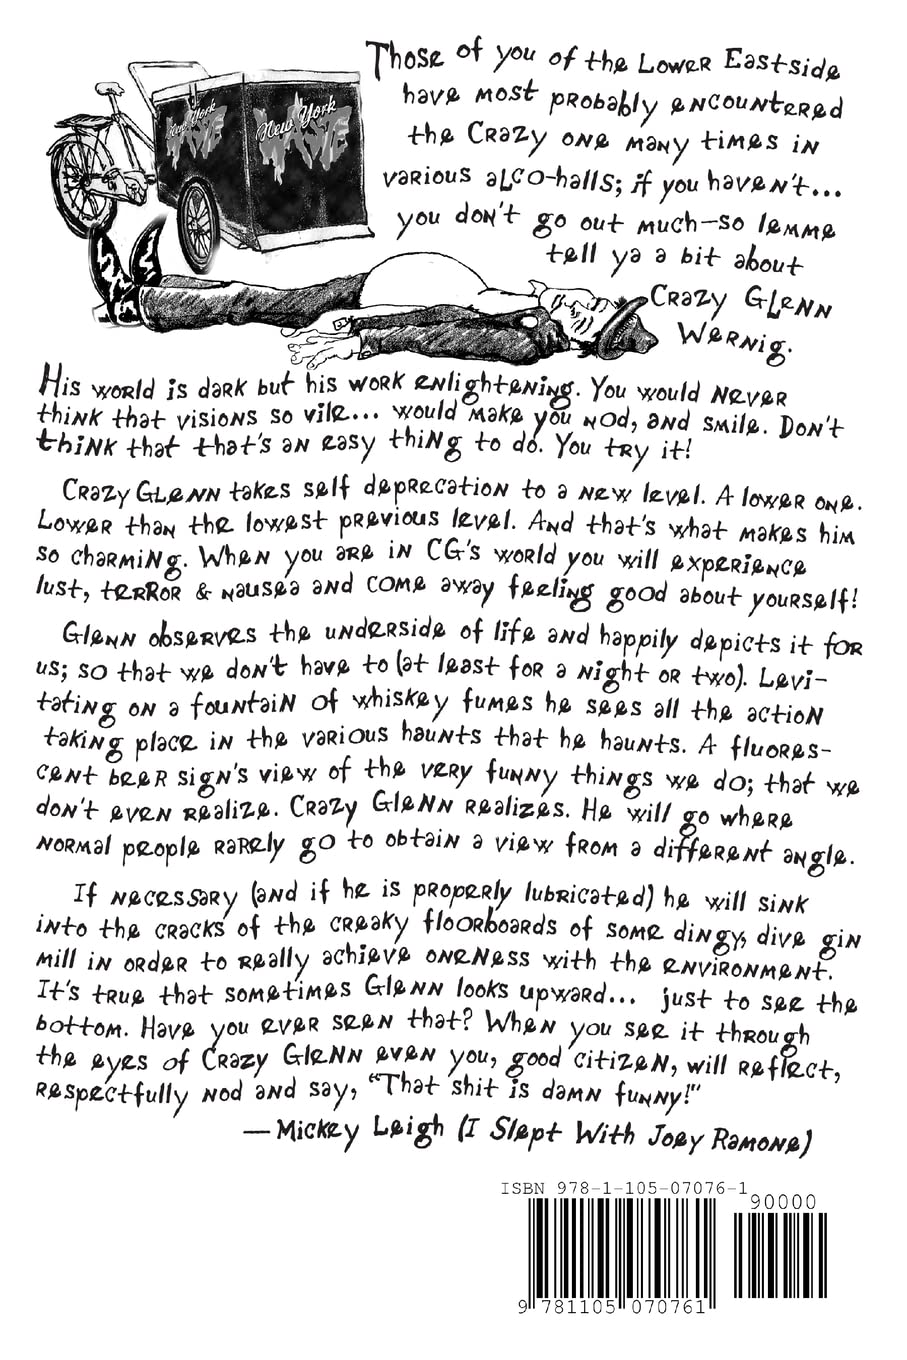 New York
WASTE
New York
WASTE
Those of you of the Lower Eastside
have most probably encountered
the Crazy one many times in
various alco-halls; if you haven't...
you don't go out much—so lemme
tell ya a bit about
Crazy Glenn
Wernig.
His world is dark but his work enlightening. You would never
think that visions so vile... would make you nod, and smile. Don't
think that that's an easy thing to do. You try it!
Crazy Glenn takes self deprecation to a new level. A lower one.
Lower than the lowest previous level. And that's what makes him
so charming. When you are in CG's world you will experience
lust, terror & nausea and come away feeling good about yourself!
Glenn observes the underside of life and happily depicts it for
us; so that we don't have to (at least for a night or two). Levi-
tating on a fountain of whiskey fumes he sees all the action
taking place in the various haunts that he haunts. A fluores-
cent beer sign's view of the very funny things we do; that we
don't even realize. Crazy Glenn realizes. He will go where
normal people rarely go to obtain a view from a different angle.
If necessary (and if he is properly lubricated) he will sink
into the cracks of the creaky floorboards of some dingy, dive gin
mill in order to really achieve oneness with the environment.
It's true that sometimes Glenn looks upward... just to see the
bottom. Have you ever seen that? When you see it through
the eyes of Crazy Glenn even you, good citizen, will reflect,
respectfully nod and say, "That shit is damn funny!"
—Mickey Leigh (I Slept With Joey Ramone)
ISBN 978-1-105-07076-1
90000
9 781105 070761